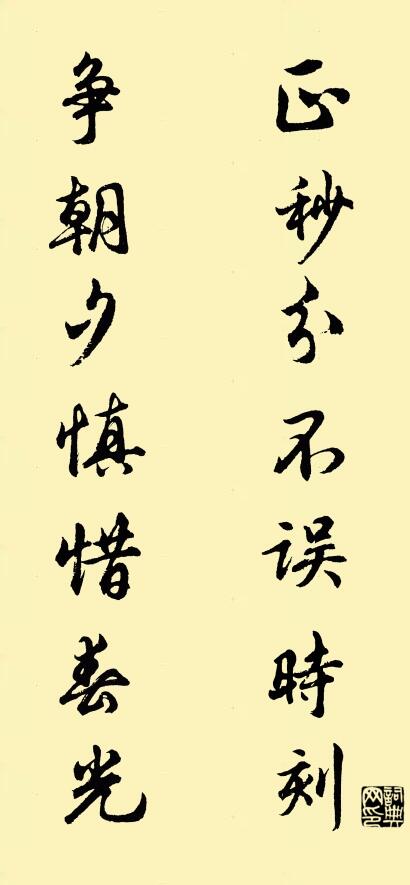 正秒分不误時刻
争朝夕慎惜春光
詞典网印